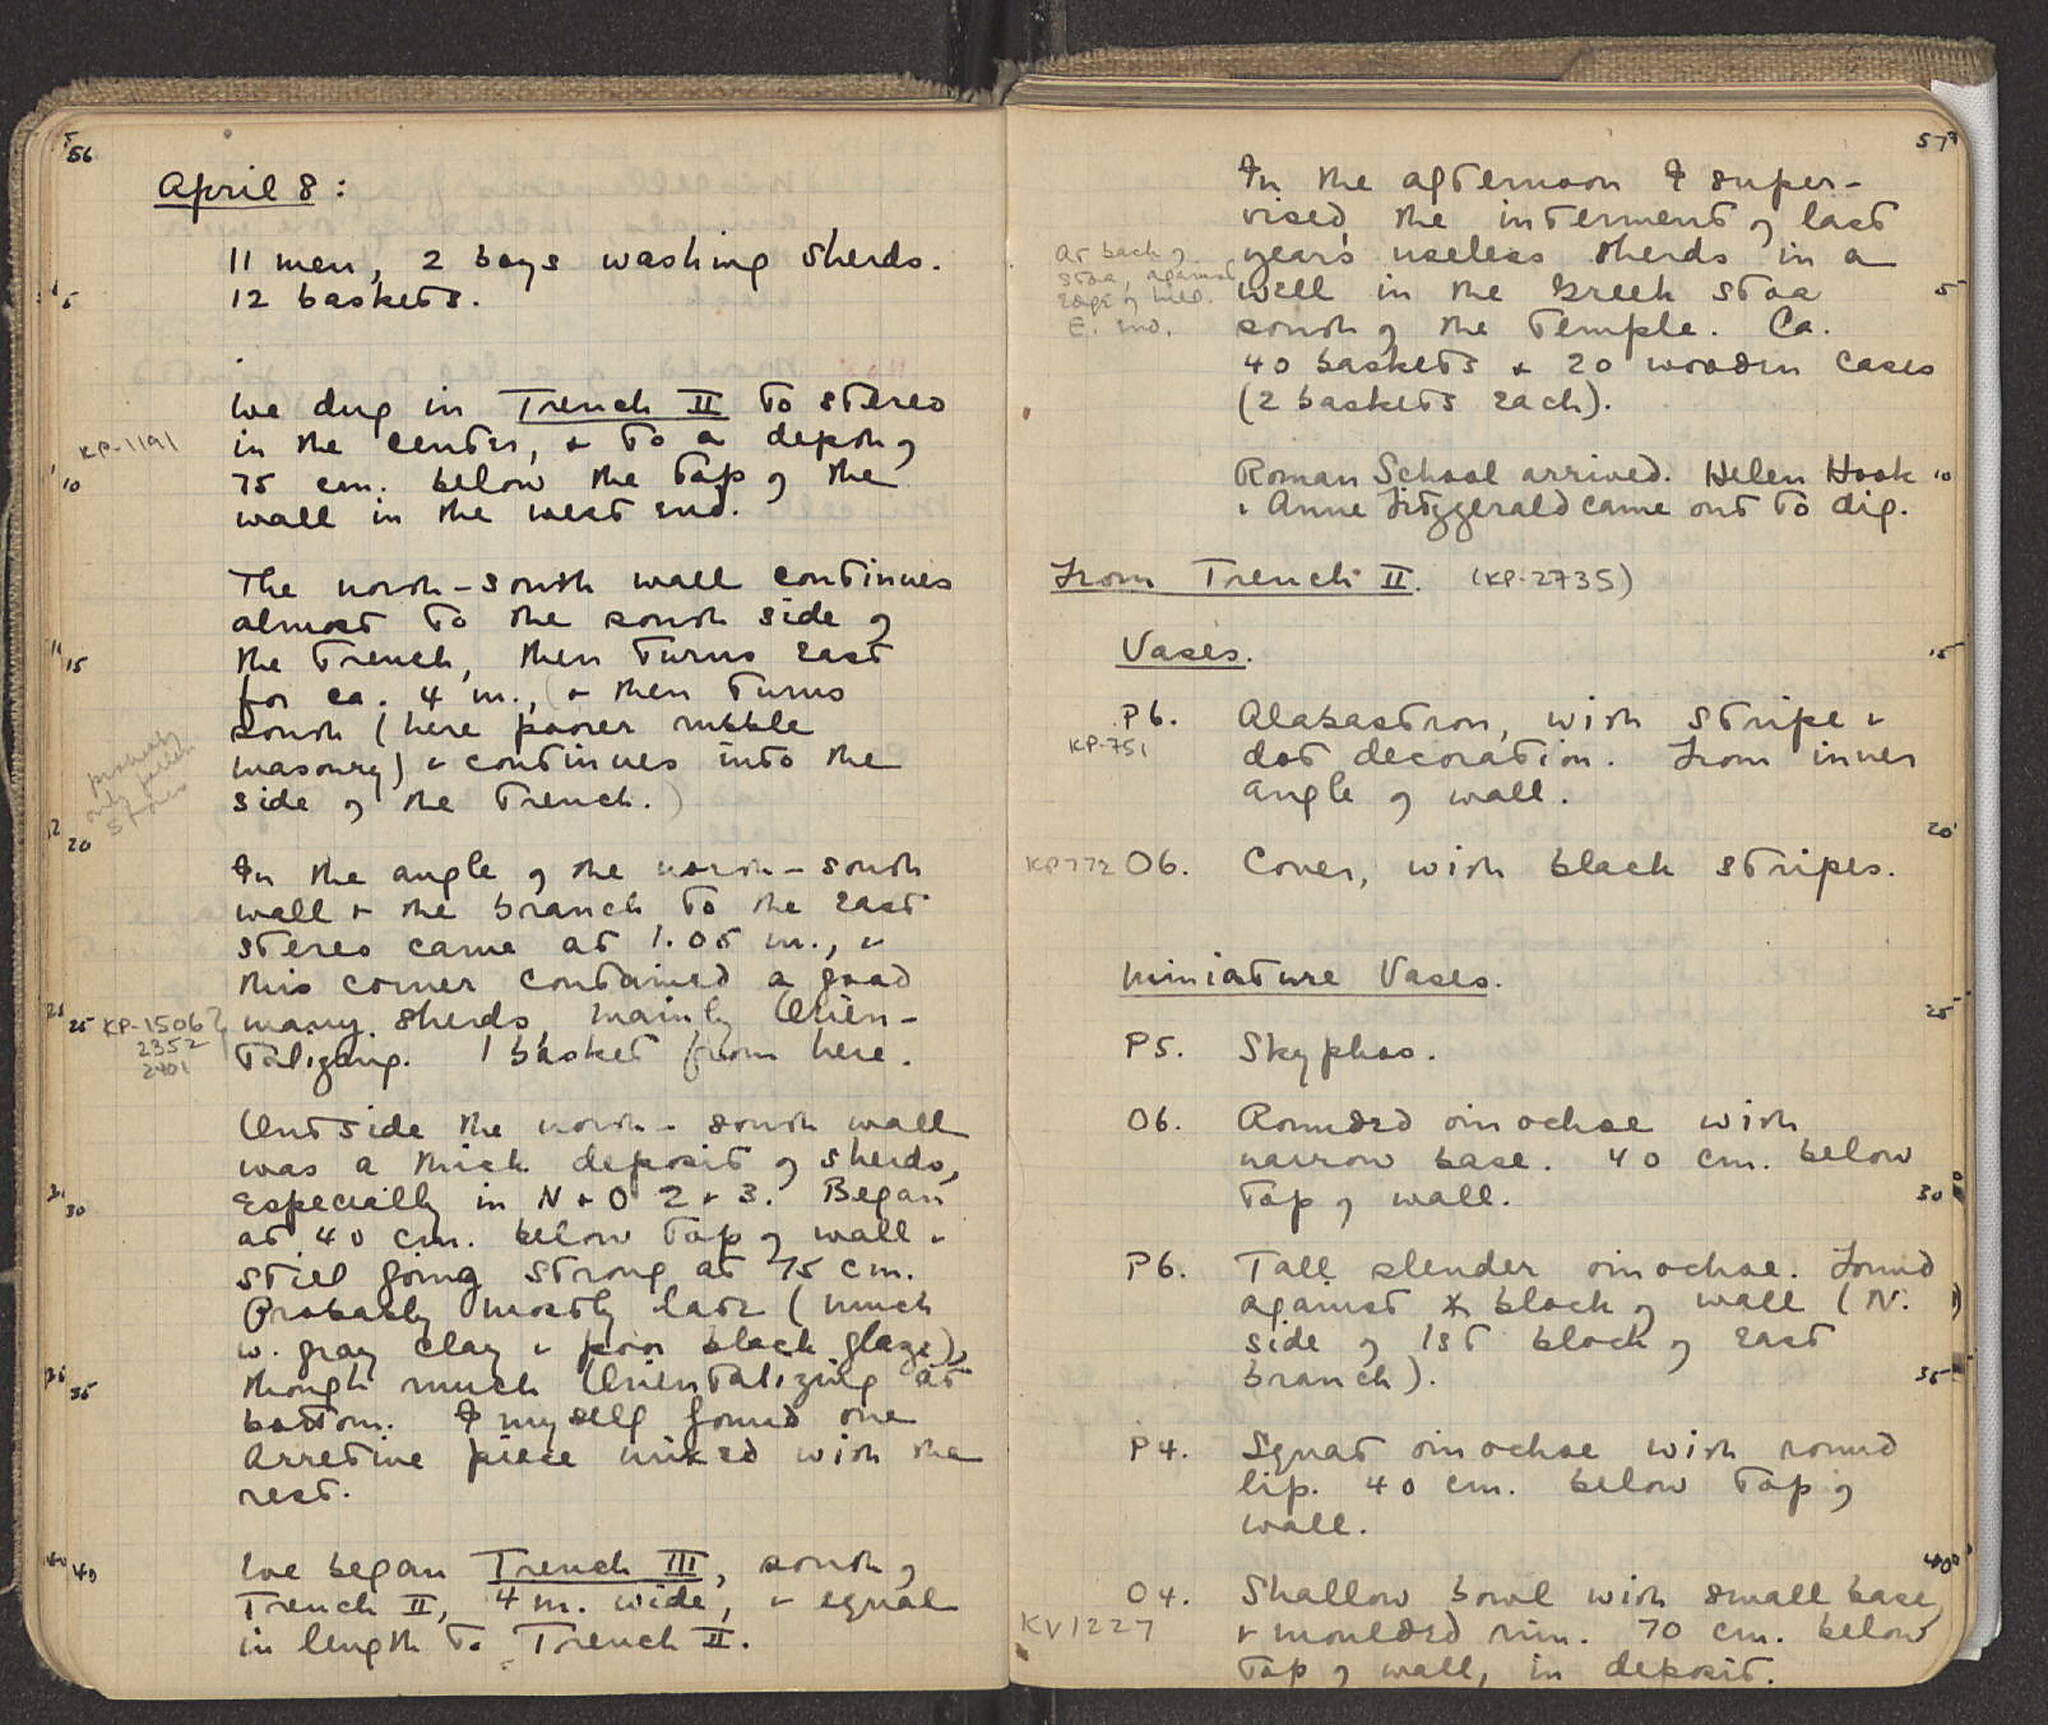 56
April 8:
11 men, 2 boys washing sherds.
5
12 baskets.
We dug in Trench II to stereo
KP-1191
in the center, & to a depth of
10
75 cm. below the top of the
wall in the west end.
The north-south wall continues
almost to the south side of
15
the trench, then turns east
for ca. 4 m., (& then turns
south (here poorer rubble
masonry) & continues into the
side of the trench.)
probably
only fallen
stones
20
In the angle of the north-south
wall & the branch to the east
stereo came at 1.05 m., &
this corner contained a good
25
KP-1506?
2352
2401
many sherds, mainly Orien-
talizing. 1 basket from here.
Outside the north-south wall
was a thick deposit of sherds,
especially in N & O 2 & 3. Began
30
at 40 cm. below top of wall &
still going strong at 75 cm.
Probably mostly late (much
w. gray clay & poor black glaze),
35
though much Orientalizing at
bottom. I myself found one
Arretine piece mixed with the
rest.
40
We began Trench III, south of
Trench II, 4 m. wide, & equal
in length to Trench II.
57
In the afternoon I super-
vised the interment of last
year's useless sherds in a
5
well in the Greek stoa
south of the temple. Ca.
40 baskets & 20 wooden cases
(2 baskets each).
At back of
stoa, against
edge of hill.
E. end.
Roman School arrived. Helen Hook
10
& Anne Fitzgerald came out to dig.
From Trench II. (KP-2735)
Vases.
15
P6. Alabastron, with stripe &
KP-751
dot decoration. From inner
angle of wall.
20
KP772 O6. Cover, with black stripes.
Miniature Vases.
25
P5. Skyphos.
O6. Rounded oinochoe with
narrow base. 40 cm. below
top of wall.
30
P6. Tall slender oinochoe. Found
against block of wall (N.
side of 1st block of east
branch).
35
P4. Squat oinochoe with round
lip. 40 cm. below top of
wall.
40
O4. Shallow bowl with small base
KV1227
& moulded rim. 70 cm. below
top of wall, in deposit.